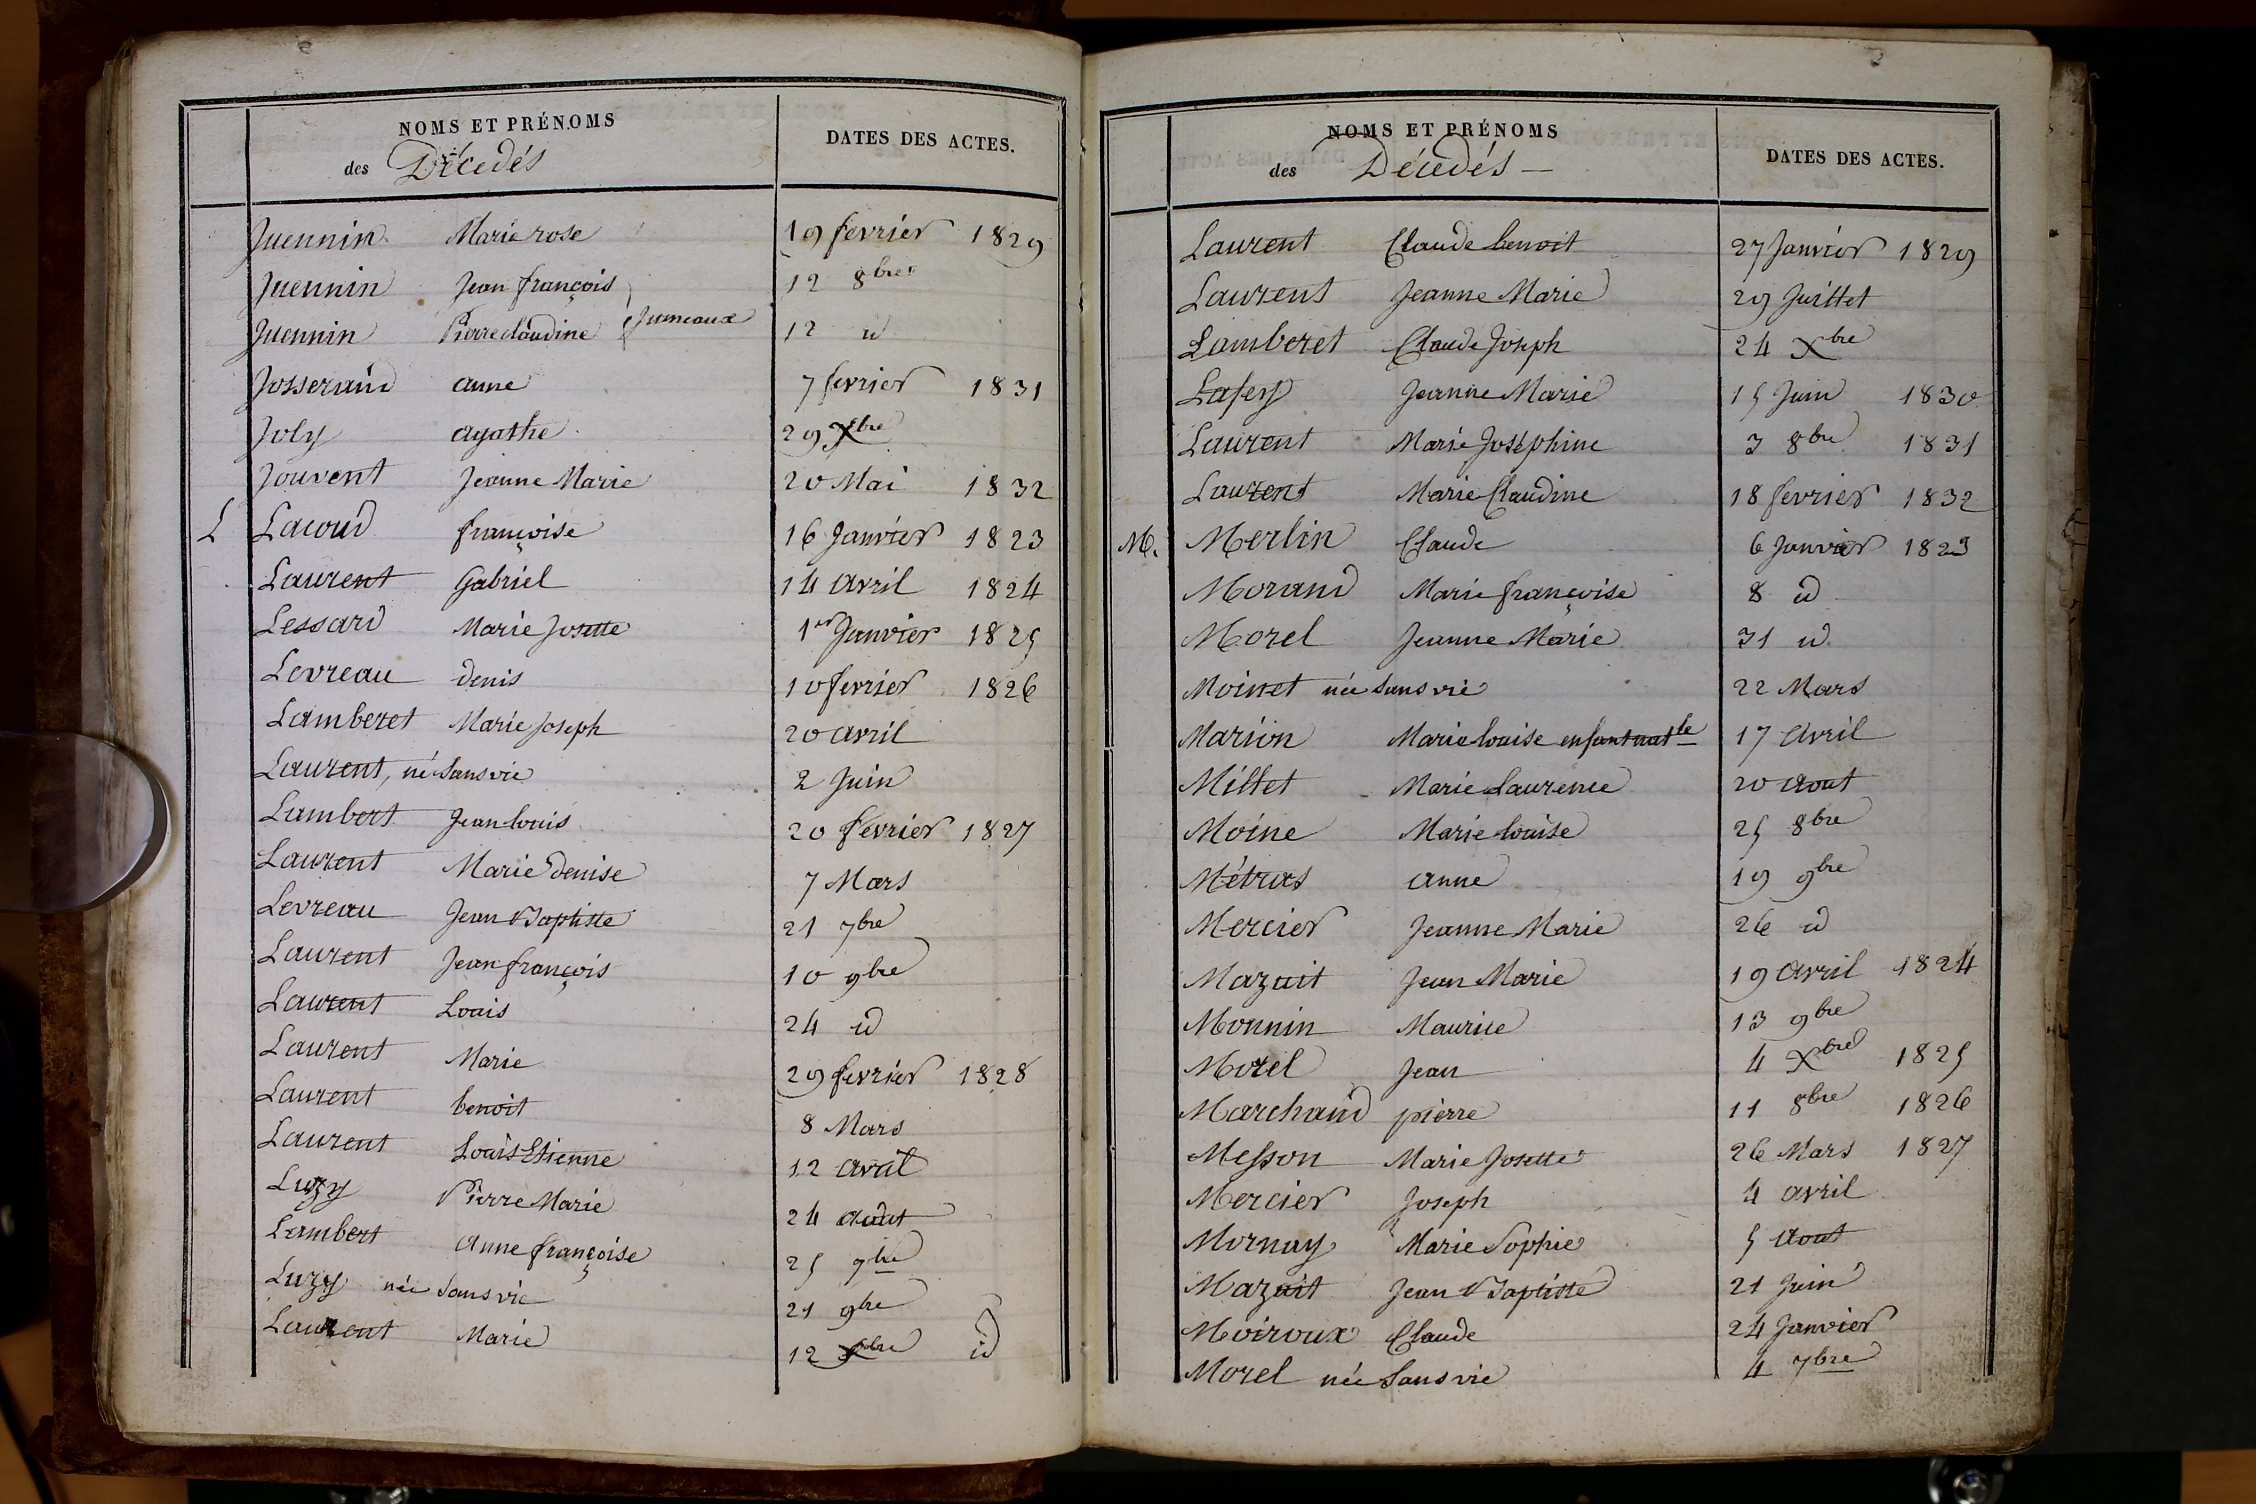 NOMS ET PRÉNOMS
des Décédés
DATES DES ACTES.
Juennin Marie rose 19 fevrier 1829
Juennin Jean françois 12 8bre
Juennin Pierre claudine Jumeaux 12 id
Josserand anne 7 fevrier 1831
Joly agathe 29 Xbre
Jouvent Jeanne Marie 20 Mai 1832
L Lacoud françoise 16 Janvier 1823
Laurent Gabriel 14 avril 1824
Lessard Marie Josette 1er Janvier 1825
Levreau denis 10 fevrier 1826
Lamberet Marie Joseph 20 avril
Laurent, né Sans vie 2 Juin
Lambert Jean louis 20 fevrier 1827
Laurent Marie denise 7 Mars
Levreau Jean Baptiste 21 7bre
Laurent Jean françois 10 9bre
Laurent Louis 24 id
Laurent Marie 29 fevrier 1828
Laurent benoit 8 Mars
Laurent Louis Etienne 12 avril
Luzy Pierre Marie 24 aout
Lambert Anne françoise 25 7bre
Luzy née Sans vie 21 9bre
Laurent Marie 12 Xbre id
NOMS ET PRÉNOMS
des Décédés —
DATES DES ACTES.
Laurent Claude benoit 27 Janvier 1829
Laurent Jeanne Marie 29 Juillet
Lamberet Claude Joseph 24 Xbre
Lafey Jeanne Marie 15 Juin 1830
Laurent Marie Joséphine 3 8bre 1831
Laurent Marie Claudine 18 fevrier 1832
M. Merlin Claude 6 Janvier 1823
Morand Marie françoise 8 id
Morel Jeanne Marie 31 id
Moinet née Sans vie 22 Mars
Marion Marie louise enfant natlle 17 Avril
Millet Marie Laurence 20 Aout
Moine Marie louise 25 8bre
Métras anne 19 9bre
Mercier Jeanne Marie 26 id
Mazuit Jean Marie 19 avril 1824
Monnin Maurice 13 9bre
Morel Jean 4 Xbre 1825
Marchand pierre 11 8bre 1826
Messon Marie Josette 26 Mars 1827
Mercier Joseph 4 avril
Mornay Marie Sophie 5 Aout
Mazuit Jean Baptiste 21 Juin
Moiroux Claude 24 Janvier
Morel née Sans vie 4 7bre